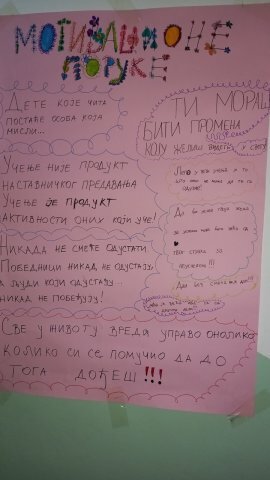 МОТИВАЦИОНЕ
ПОРУКЕ
ДЕТЕ КОЈЕ ЧИТА
ПОСТАЋЕ ОСОБА КОЈА
МИСЛИ...
УЧЕЊЕ НИЈЕ ПРОДУКТ
НАСТАВНИЧКОГ ПРЕДАВАЊА
УЧЕЊЕ ЈЕ ПРОДУКТ
АКТИВНОСТИ ОНИХ КОЈИ УЧЕ!
НИКАДА НЕ СМЕТЕ ОДУСТАТИ.
ПОБЕДНИЦИ НИКАД НЕ ОДУСТАЈУ,
А ЉУДИ КОЈИ ОДУСТАЈУ...
НИКАД НЕ ПОБЕЂУЈУ!
ТИ МОРАШ
БИТИ ПРОМЕНА
КОЈУ ЖЕЛИШ ВИДЕТИ У СВЕТУ
ЛЕПО У УЧЕЊУ ЈЕ ТО
ШТО НИКО НЕ МОЖЕ ДА ТИ ГА
ОДУЗМЕ!
ДАН БЕЗ СМЕХА ЈЕ
СВЕ У ЖИВОТУ ВРЕДИ УПРАВО ОНОЛИКО
КОЛИКО СИ СЕ ПОМУЧИО ДА ДО
ТОГА ДОЂЕШ!!!